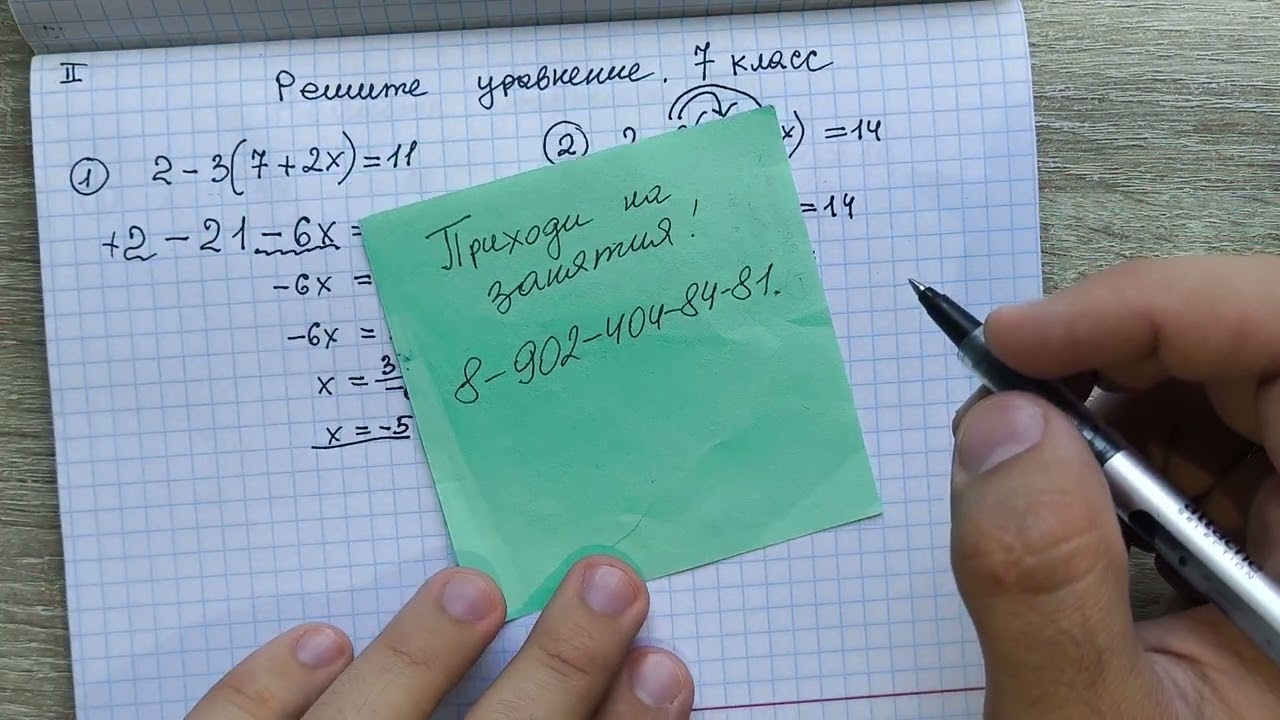 II
Решите уравнение. 7 класс
① 2 - 3(7 + 2x) = 11
+2 - 21 - 6x =
-6x =
-6x =
x = 3
x = -5
② 2
x) = 14
= 14
Приходи на
занятия!
8-902-404-84-81.
SELECTION